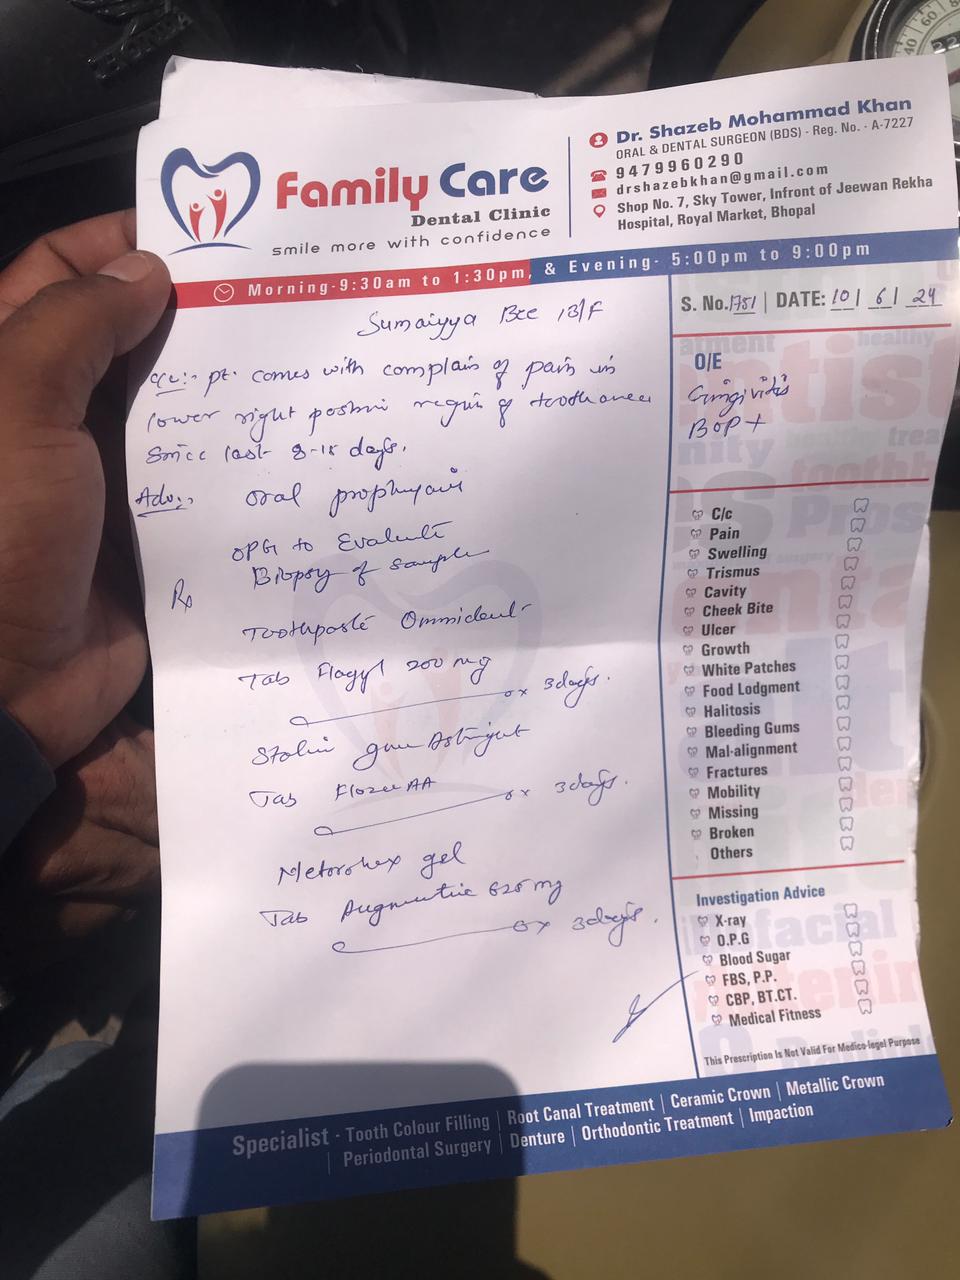 Family Care
Dental Clinic
smile more with confidence
Dr. Shazeb Mohammad Khan
ORAL & DENTAL SURGEON (BDS) - Reg. No. - A-7227
9479960290
drshazebkhan@gmail.com
Shop No. 7, Sky Tower, Infront of Jeewan Rekha
Hospital, Royal Market, Bhopal
Morning-9:30am to 1:30pm, & Evening- 5:00pm to 9:00pm
S. No. 1751 | DATE: 10 / 6 / 24
Sumaiyya Bee
pt. comes with complain of pain in
lower right region of tooth
since last days.
Adv:-
Oral prophylaxis
OPG to Evaluate
Biopsy of sample
Rx
Toothpaste
Tab Flagyl 200 mg
x 3days.
gum Astringent
Tab
x 3days.
Metrohex gel
Tab Augmentin 625 mg
x 3days.
O/E
Gingivitis
BOP +
C/c
Pain
Swelling
Trismus
Cavity
Cheek Bite
Ulcer
Growth
White Patches
Food Lodgment
Halitosis
Bleeding Gums
Mal-alignment
Fractures
Mobility
Missing
Broken
Others
Investigation Advice
X-ray
O.P.G
Blood Sugar
FBS, P.P.
CBP, BT.CT.
Medical Fitness
This Prescription Is Not Valid For Medico-legel Purpose
Specialist - Tooth Colour Filling | Root Canal Treatment | Ceramic Crown | Metallic Crown
| Periodontal Surgery | Denture | Orthodontic Treatment | Impaction